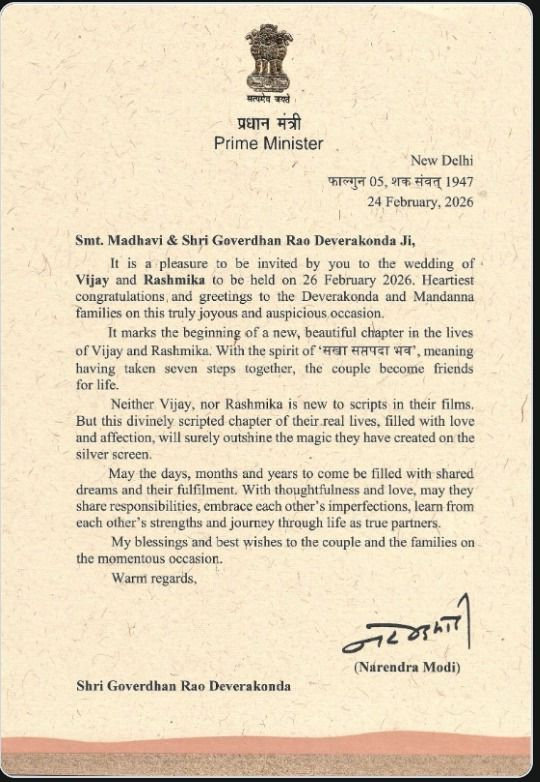 सत्यमेव जयते
प्रधान मंत्री
Prime Minister
New Delhi
फाल्गुन 05, शक संवत् 1947
24 February, 2026
Smt. Madhavi & Shri Goverdhan Rao Deverakonda Ji,
It is a pleasure to be invited by you to the wedding of
Vijay and Rashmika to be held on 26 February 2026. Heartiest
congratulations and greetings to the Deverakonda and Mandanna
families on this truly joyous and auspicious occasion.
It marks the beginning of a new, beautiful chapter in the lives
of Vijay and Rashmika. With the spirit of ‘सखा सप्तपदा भव’, meaning
having taken seven steps together, the couple become friends
for life.
Neither Vijay, nor Rashmika is new to scripts in their films.
But this divinely scripted chapter of their real lives, filled with love
and affection, will surely outshine the magic they have created on the
silver screen.
May the days, months and years to come be filled with shared
dreams and their fulfilment. With thoughtfulness and love, may they
share responsibilities, embrace each other’s imperfections, learn from
each other’s strengths and journey through life as true partners.
My blessings and best wishes to the couple and the families on
the momentous occasion.
Warm regards,
(Narendra Modi)
Shri Goverdhan Rao Deverakonda